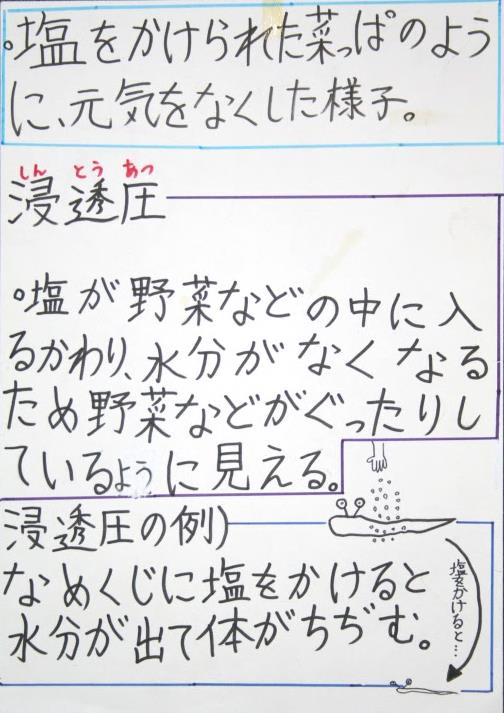 。塩をかけられた菜っぱのよう
に、元気をなくした様子。
しん とう あつ
浸透圧
。塩が野菜などの中に入
るかわり、水分がなくなる
ため野菜などがぐったりし
ているように見える。
浸透圧の例)
なめくじに塩をかけると
水分が出て体がちぢむ。
塩をかけると…